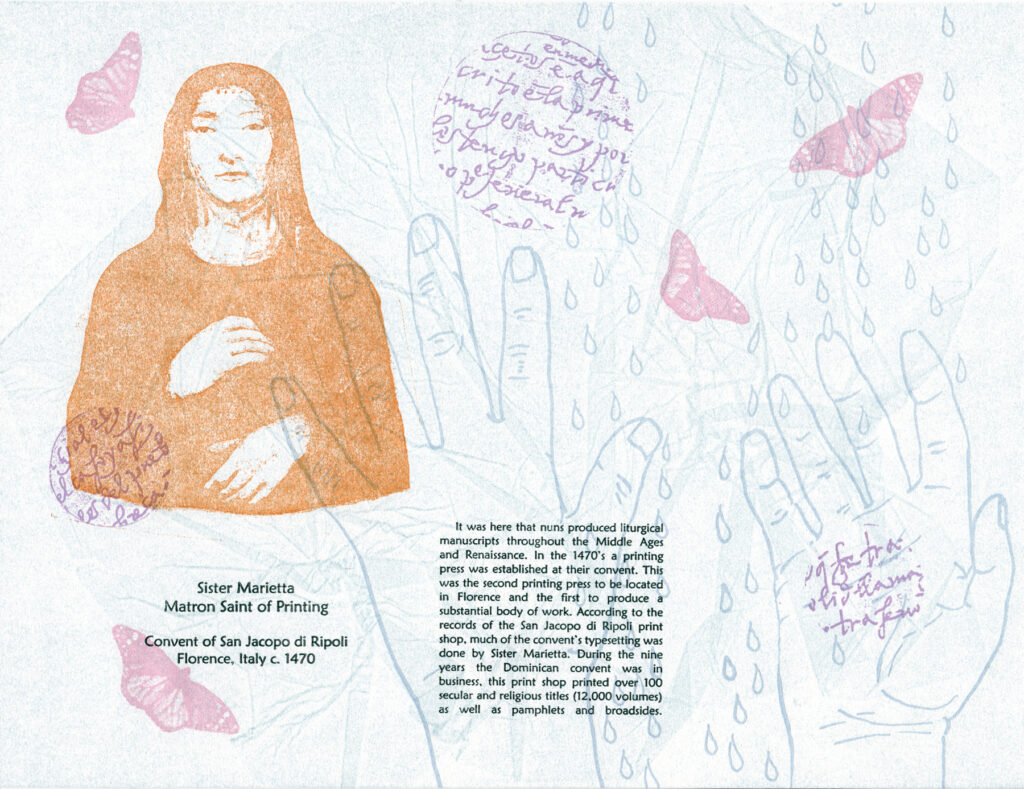 Sister Marietta
Matron Saint of Printing
Convent of San Jacopo di Ripoli
Florence, Italy c. 1470
It was here that nuns produced liturgical
manuscripts throughout the Middle Ages
and Renaissance. In the 1470's a printing
press was established at their convent. This
was the second printing press to be located
in Florence and the first to produce a
substantial body of work. According to the
records of the San Jacopo di Ripoli print
shop, much of the convent's typesetting was
done by Sister Marietta. During the nine
years the Dominican convent was in
business, this print shop printed over 100
secular and religious titles (12,000 volumes)
as well as pamphlets and broadsides.